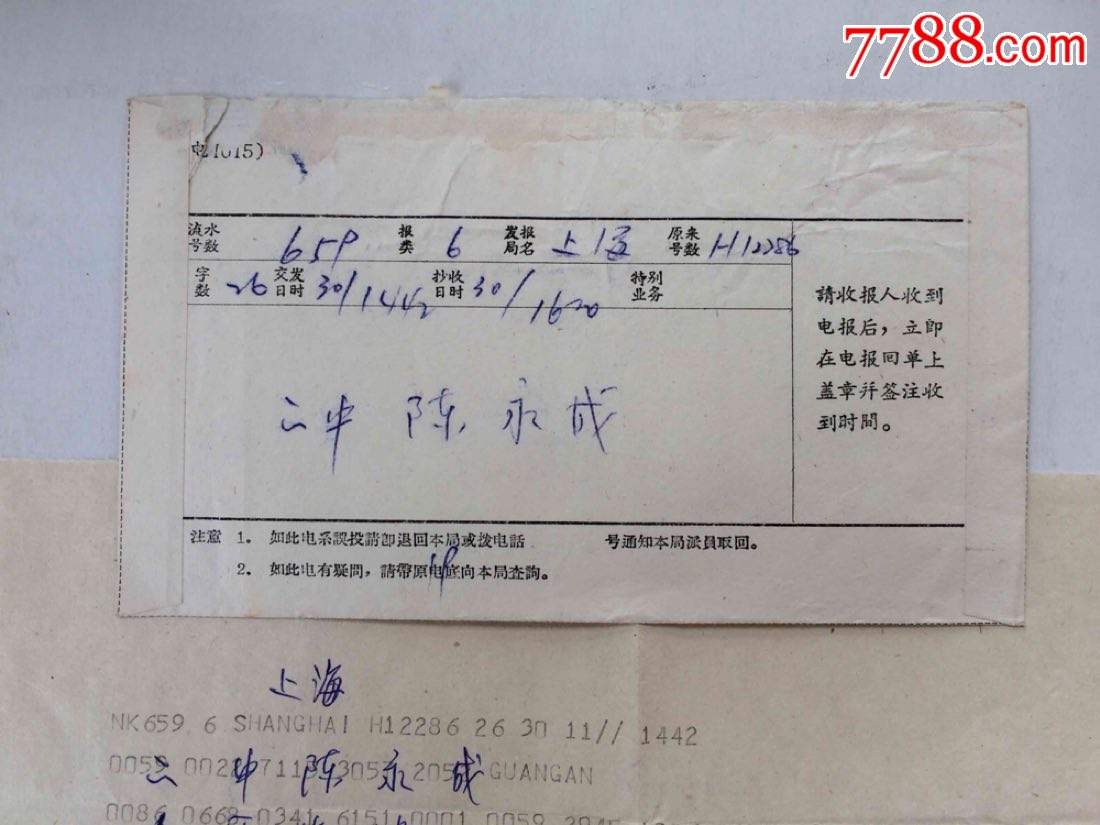 7788.com
电1015)
流水号数 659 报类 6 发报局名 上海 原来号数 H12286
字数 26 交发日时 30/1442 抄收日时 30/1620 特别业务
二中 陈永成
請收报人收到
电报后，立即
在电报回单上
盖章并签注收
到时間。
注意 1. 如此电系誤投請卽退回本局或拨电話 号通知本局派員取回。
2. 如此电有疑問，請帶原电底向本局查詢。
上海
NK659 6 SHANGHAI H12286 26 30 11// 1442
二中 陈永成
0059 GUANGAN
0086 0668 0341 6151 0001 0059